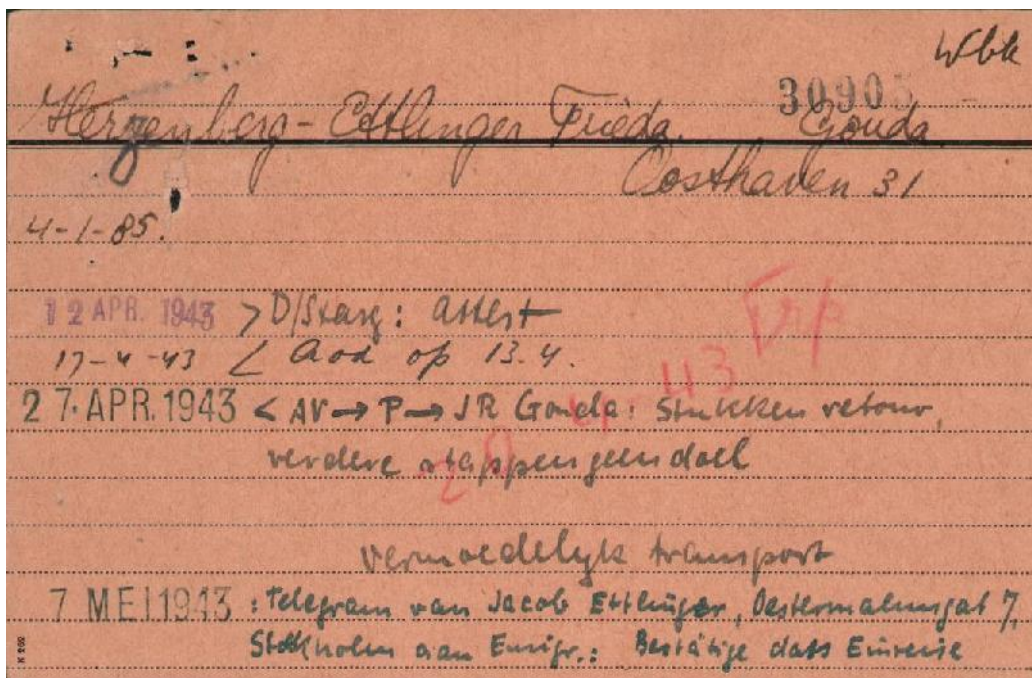 Wbk
30905 -
Herzenberg-Ettlinger Frieda. Gouda
Oosthaven 31
4-1-85.
12 APR. 1943 > D/Starg: attest Trp
17-4-43 < Aod op 13.4.
20-4-43
27. APR. 1943 < AV → P → JR Gouda: Stukken retour,
verdere stappen geen doel
vermoedelyk transport
7 MEI 1943 : Telegram van Jacob Ettlinger, Oestermalmsgat 7,
Stockholm aan Emigr.: Bestätige dass Einreise
K 202